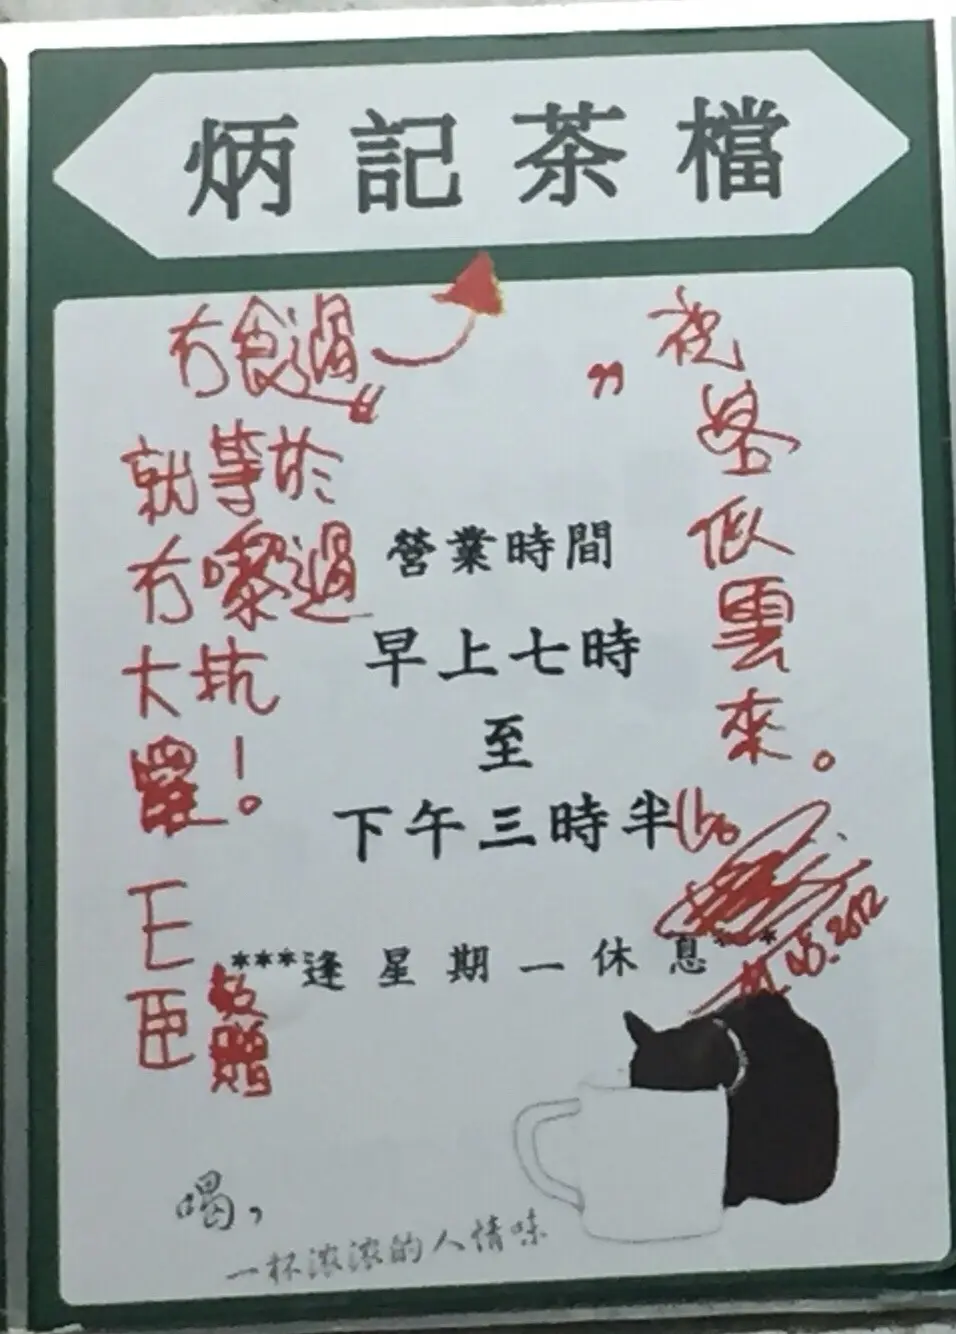 炳記茶檔
冇食過
就等於
冇嚟過
大坑
囉！
敬贈
祝
客
似
雲
來。
營業時間
早上七時
至
下午三時半
***逢星期一休息***
喝，
一杯浓浓的人情味